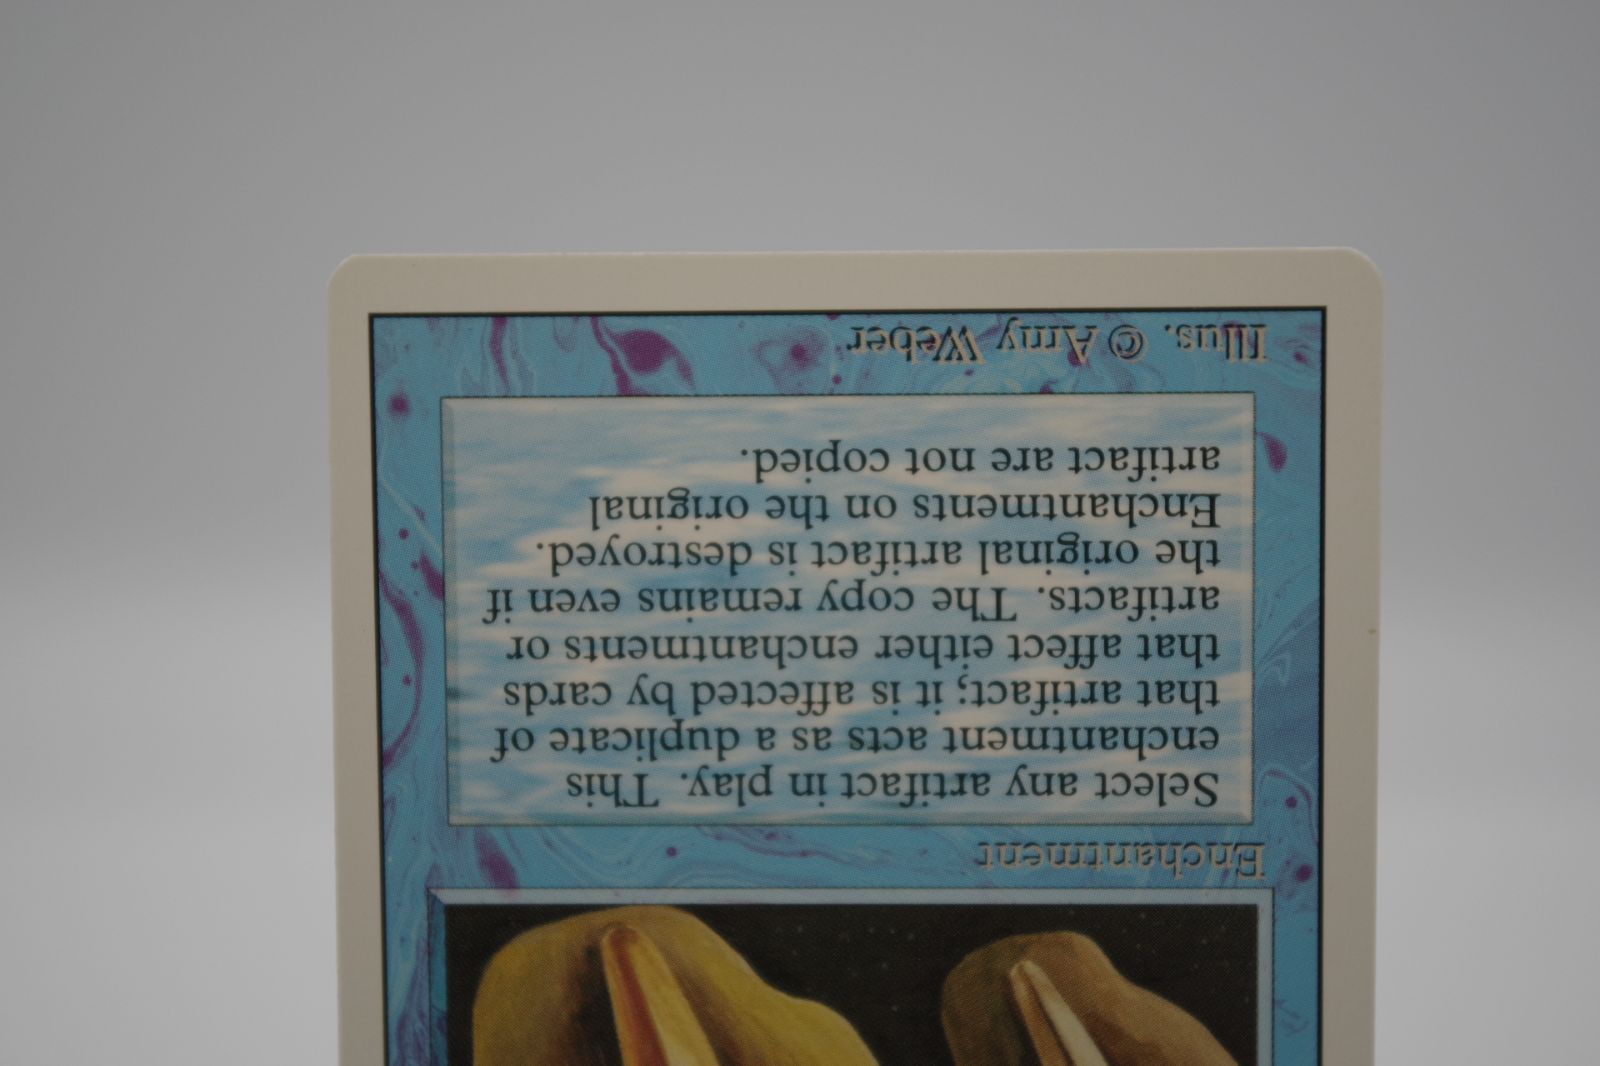 Enchantment
Select any artifact in play. This
enchantment acts as a duplicate of
that artifact; it is affected by cards
that affect either enchantments or
artifacts. The copy remains even if
the original artifact is destroyed.
Enchantments on the original
artifact are not copied.
Illus. © Amy Weber